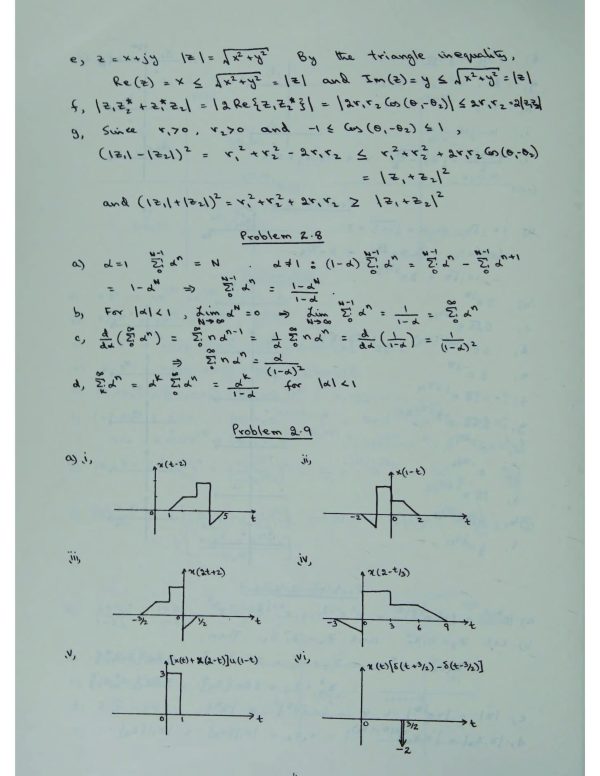 e, z = x+jy |z| = √(x²+y²) By the triangle inequality,
Re(z) = x ≤ √(x²+y²) = |z| and Im(z) = y ≤ √(x²+y²) = |z|
f, |z₁z₂* + z₁*z₂| = |2Re{z₁z₂*}| = |2r₁r₂Cos(θ₁-θ₂)| ≤ 2r₁r₂ = 2|z₁z₂|
g, Since r₁>0, r₂>0 and -1 ≤ Cos(θ₁-θ₂) ≤ 1,
(|z₁|-|z₂|)² = r₁² + r₂² - 2r₁r₂ ≤ r₁² + r₂² + 2r₁r₂Cos(θ₁-θ₂)
= |z₁+z₂|²
and (|z₁|+|z₂|)² = r₁² + r₂² + 2r₁r₂ ≥ |z₁+z₂|²
Problem 2.8
a) α=1 Σ₀ᴺ⁻¹ αⁿ = N . α≠1 : (1-α) Σ₀ᴺ⁻¹ αⁿ = Σ₀ᴺ⁻¹ αⁿ - Σ₀ᴺ⁻¹ αⁿ⁺¹
= 1-αᴺ ⇒ Σ₀ᴺ⁻¹ αⁿ = (1-αᴺ)/(1-α) .
b, For |α|<1, Lim N→∞ αᴺ = 0 ⇒ Lim N→∞ Σ₀ᴺ⁻¹ αⁿ = 1/(1-α) = Σ₀^∞ αⁿ
c, d/dα (Σ₀^∞ αⁿ) = Σ₀^∞ nαⁿ⁻¹ = 1/α Σ₀^∞ nαⁿ = d/dα (1/(1-α)) = 1/(1-α)²
⇒ Σ₀^∞ nαⁿ = α/(1-α)²
d, Σₖ^∞ αⁿ = αᵏ Σ₀^∞ αⁿ = αᵏ/(1-α) for |α|<1
Problem 2.9
a) i, ii,
x(t-2) x(1-t)
0 5 t -2 0 2 t
iii, iv,
x(2t+2) x(2-t/3)
-3/2 0 1/2 t -3 0 3 6 9 t
v, vi,
[x(t)+x(2-t)]u(1-t) x(t)[δ(t+3/2) - δ(t-3/2)]
3
0 1 t 0 3/2 t
-2